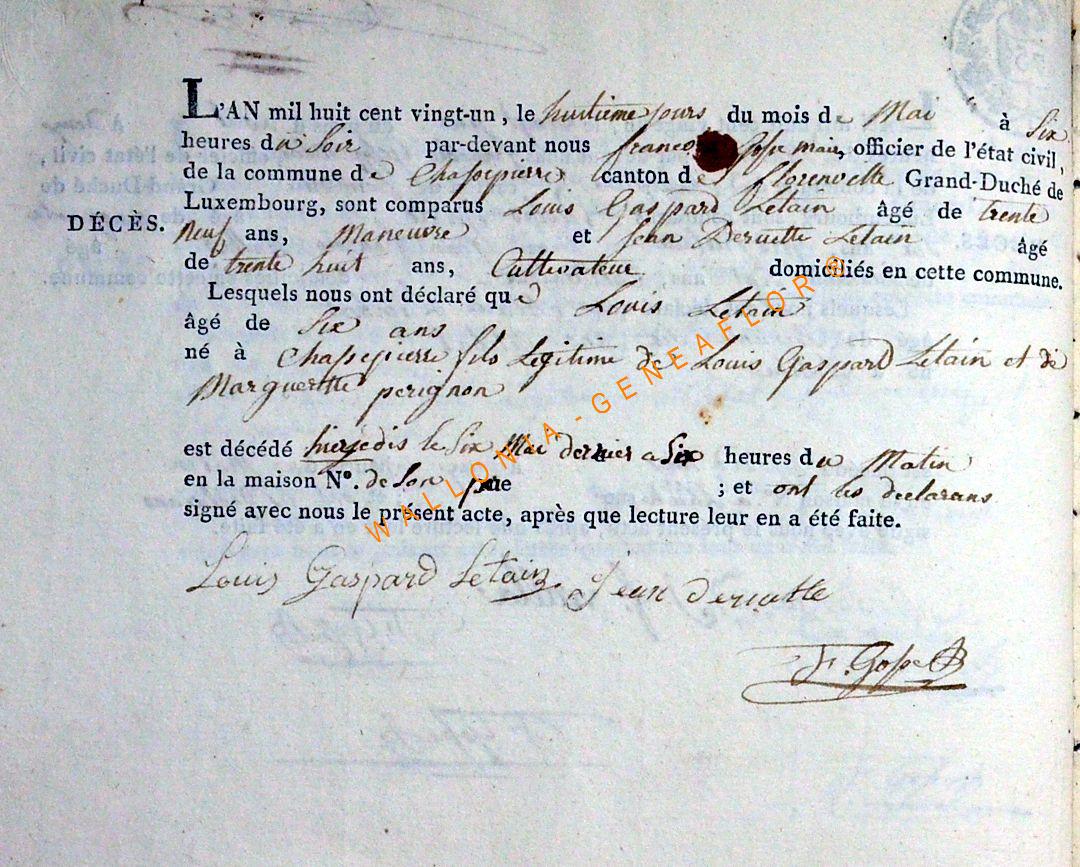 L'AN mil huit cent vingt-un, le huitieme jours du mois de Mai à Six
heures du Soir par-devant nous francois Gosse mair, officier de l'état civil,
de la commune de Chassepierre canton de florenville Grand-Duché de
Luxembourg, sont comparus Louis Gaspard Letain âgé de trente
DÉCÈS.
Neuf ans, Maneuvre et Jean Deruette Letain âgé
de trente huit ans, Cultivateur domiciliés en cette commune.
Lesquels nous ont déclaré que Louis Letain
âgé de Six ans
né à Chassepierre fils Legitime de Louis Gaspard Letain et de
Marguerette perignon
est décédé le Six Mai dernier a Six heures du Matin
en la maison N°. de Son pere ; et ont les declarans
signé avec nous le présent acte, après que lecture leur en a été faite.
Louis Gaspard Letain Jean deruette
F. Gosse
WALLONIA-GENEAFLOR®